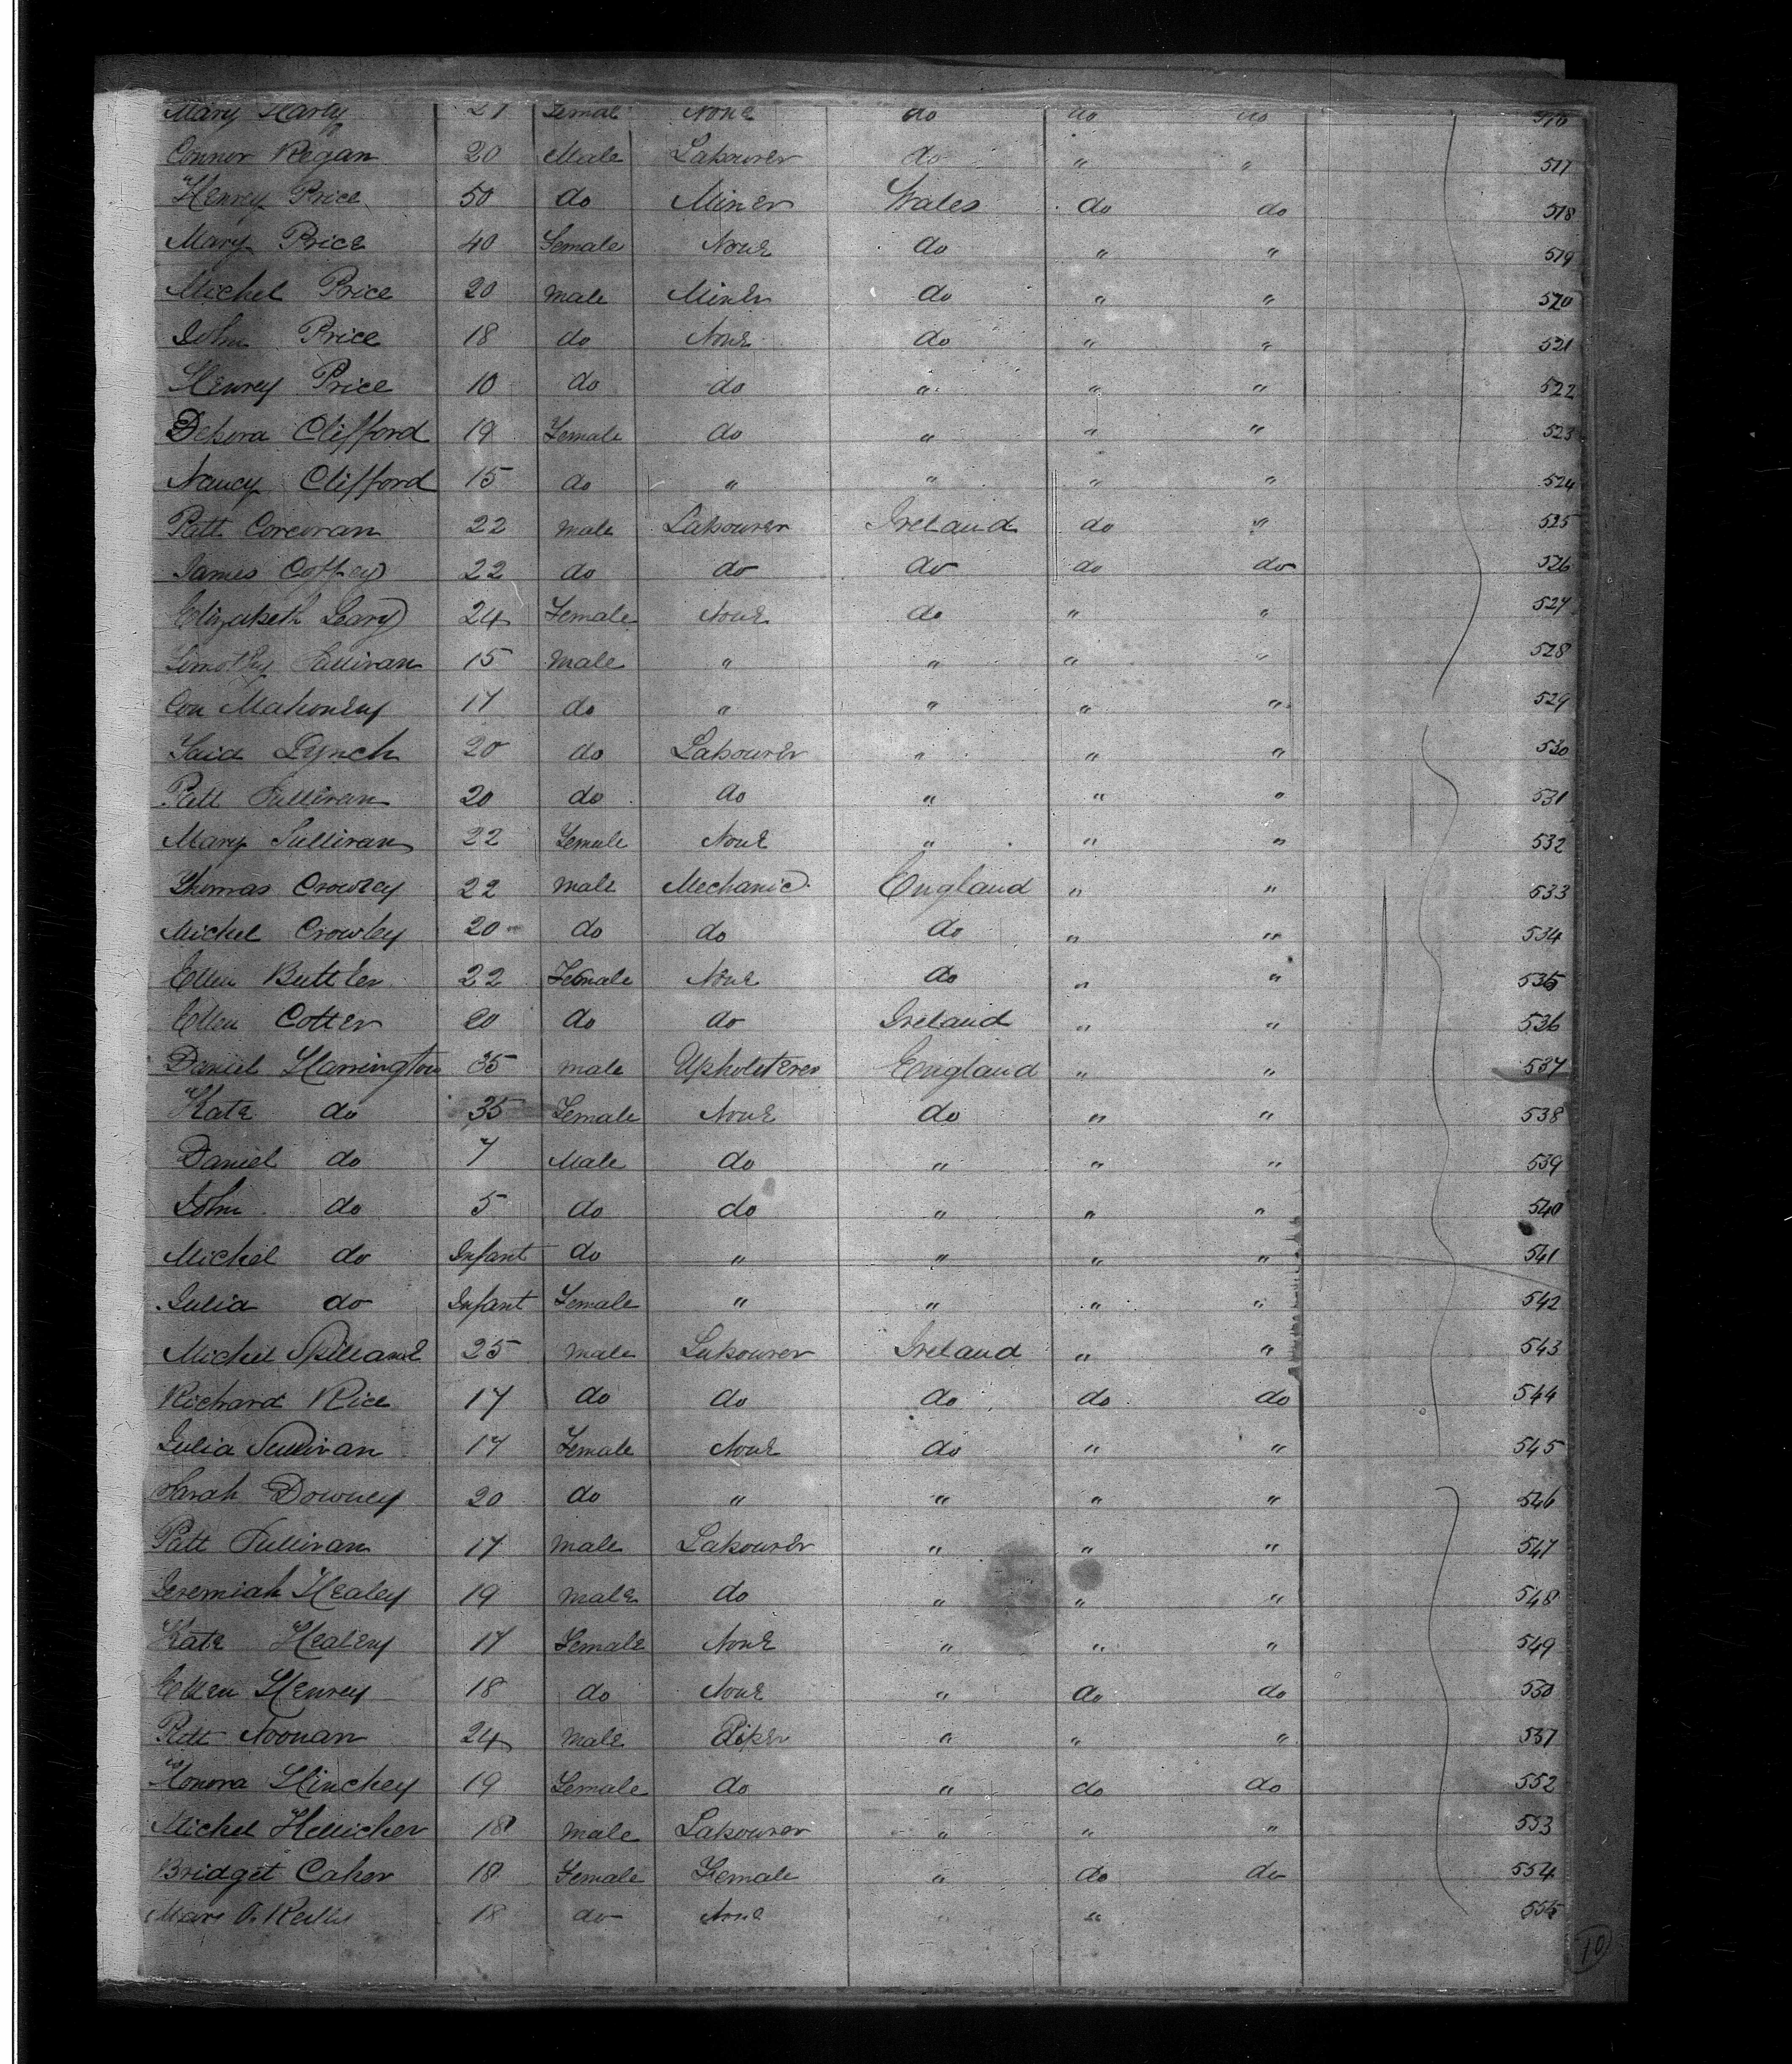 Mary Harty 21 Female None do do do 516
Connor Regan 20 Male Labourer do " " 517
Henrey Price 50 do Miner Wales do do 518
Mary Price 40 Female None do " " 519
Michel Price 20 male Miner do " " 520
John Price 18 do None do " " 521
Henrey Price 10 do do " " " 522
Debora Clifford 19 Female do " " " 523
Nancy Clifford 15 do " " " " 524
Patt Corcoran 22 male Labourer Ireland do " 525
James Coffey 22 do do do do do 526
Elizabeth Leary 24 Female None do " " 527
Timothy Sullivan 15 male " " " " 528
Con Mahoney 17 do " " " " 529
Lynch 20 do Labourer " " " 530
Patt Sullivan 20 do do " " " 531
Mary Sullivan 22 Female None " " " 532
Thomas Crowley 22 male Mechanic England " " 533
Michel Crowley 20 do do do " " 534
Ellen Buttler 22 Female None do " " 535
Ellen Cotter 20 do do Ireland " " 536
Daniel Harrington 35 male Upholsterer England " " 537
Kate do 35 Female None do " " 538
Daniel do 7 Male do " " " 539
John do 5 do do " " " 540
Michel do Infant do " " " " 541
Julia do Infant Female " " " " 542
Michel Spillane 25 male Labourer Ireland " " 543
Richard Rice 17 do do do do do 544
Julia Sullivan 17 Female None do " " 545
Sarah Downey 20 do " " " " 546
Patt Sullivan 17 male Labourer " " " 547
Jeremiah Healey 19 male do " " " 548
Kate Healey 17 Female None " " " 549
Ellen Henrey 18 do None " do do 550
Patt Noonan 24 male Piper " " " 551
Honora Hinchey 19 Female do " do do 552
Michel Hellicher 18 male Labourer " " " 553
Bridget Caher 18 Female Female " do do 554
18 do None " 555
10